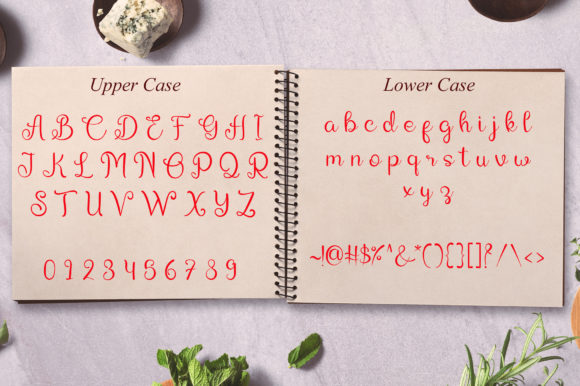 Upper Case
A B C D E F G H I
J K L M N O P Q R
S T U V W X Y Z
0 1 2 3 4 5 6 7 8 9
Lower Case
a b c d e f g h i j k l
m n o p q r s t u v w
x y z
~!@#$%^&*(){}[]? / \ < >